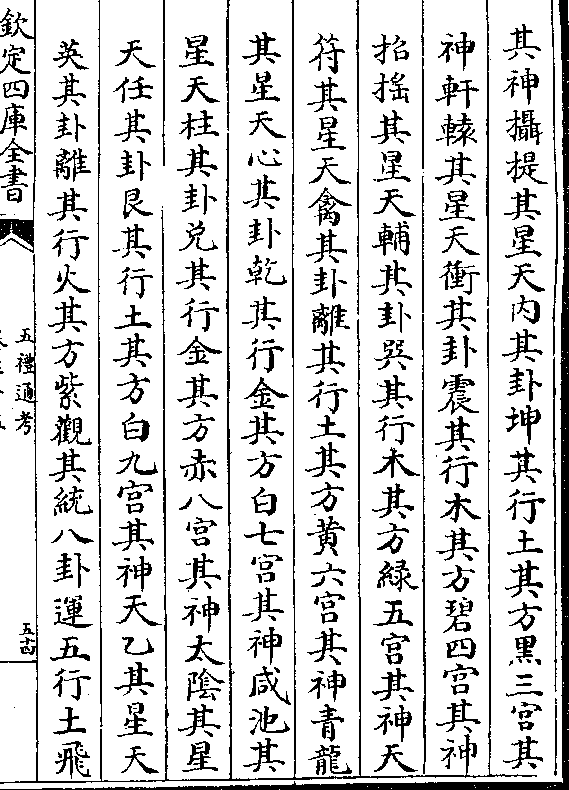 其神攝提其星天内其卦坤其行土其方黑三宫其
神軒轅其星天衝其卦震其行木其方碧四宫其神
招摇其星天輔其卦巽其行木其方綠五宫其神天
符其星天禽其卦離其行土其方黄六宫其神青龍
其星天心其卦乾其行金其方白七宫其神咸池其
星天柱其卦兑其行金其方赤八宫其神太陰其星
天任其卦艮其行土其方白九宫其神天乙其星天
英其卦離其行火其方紫觀其統八卦運五行土飛
欽定四庫全書
五禮通考